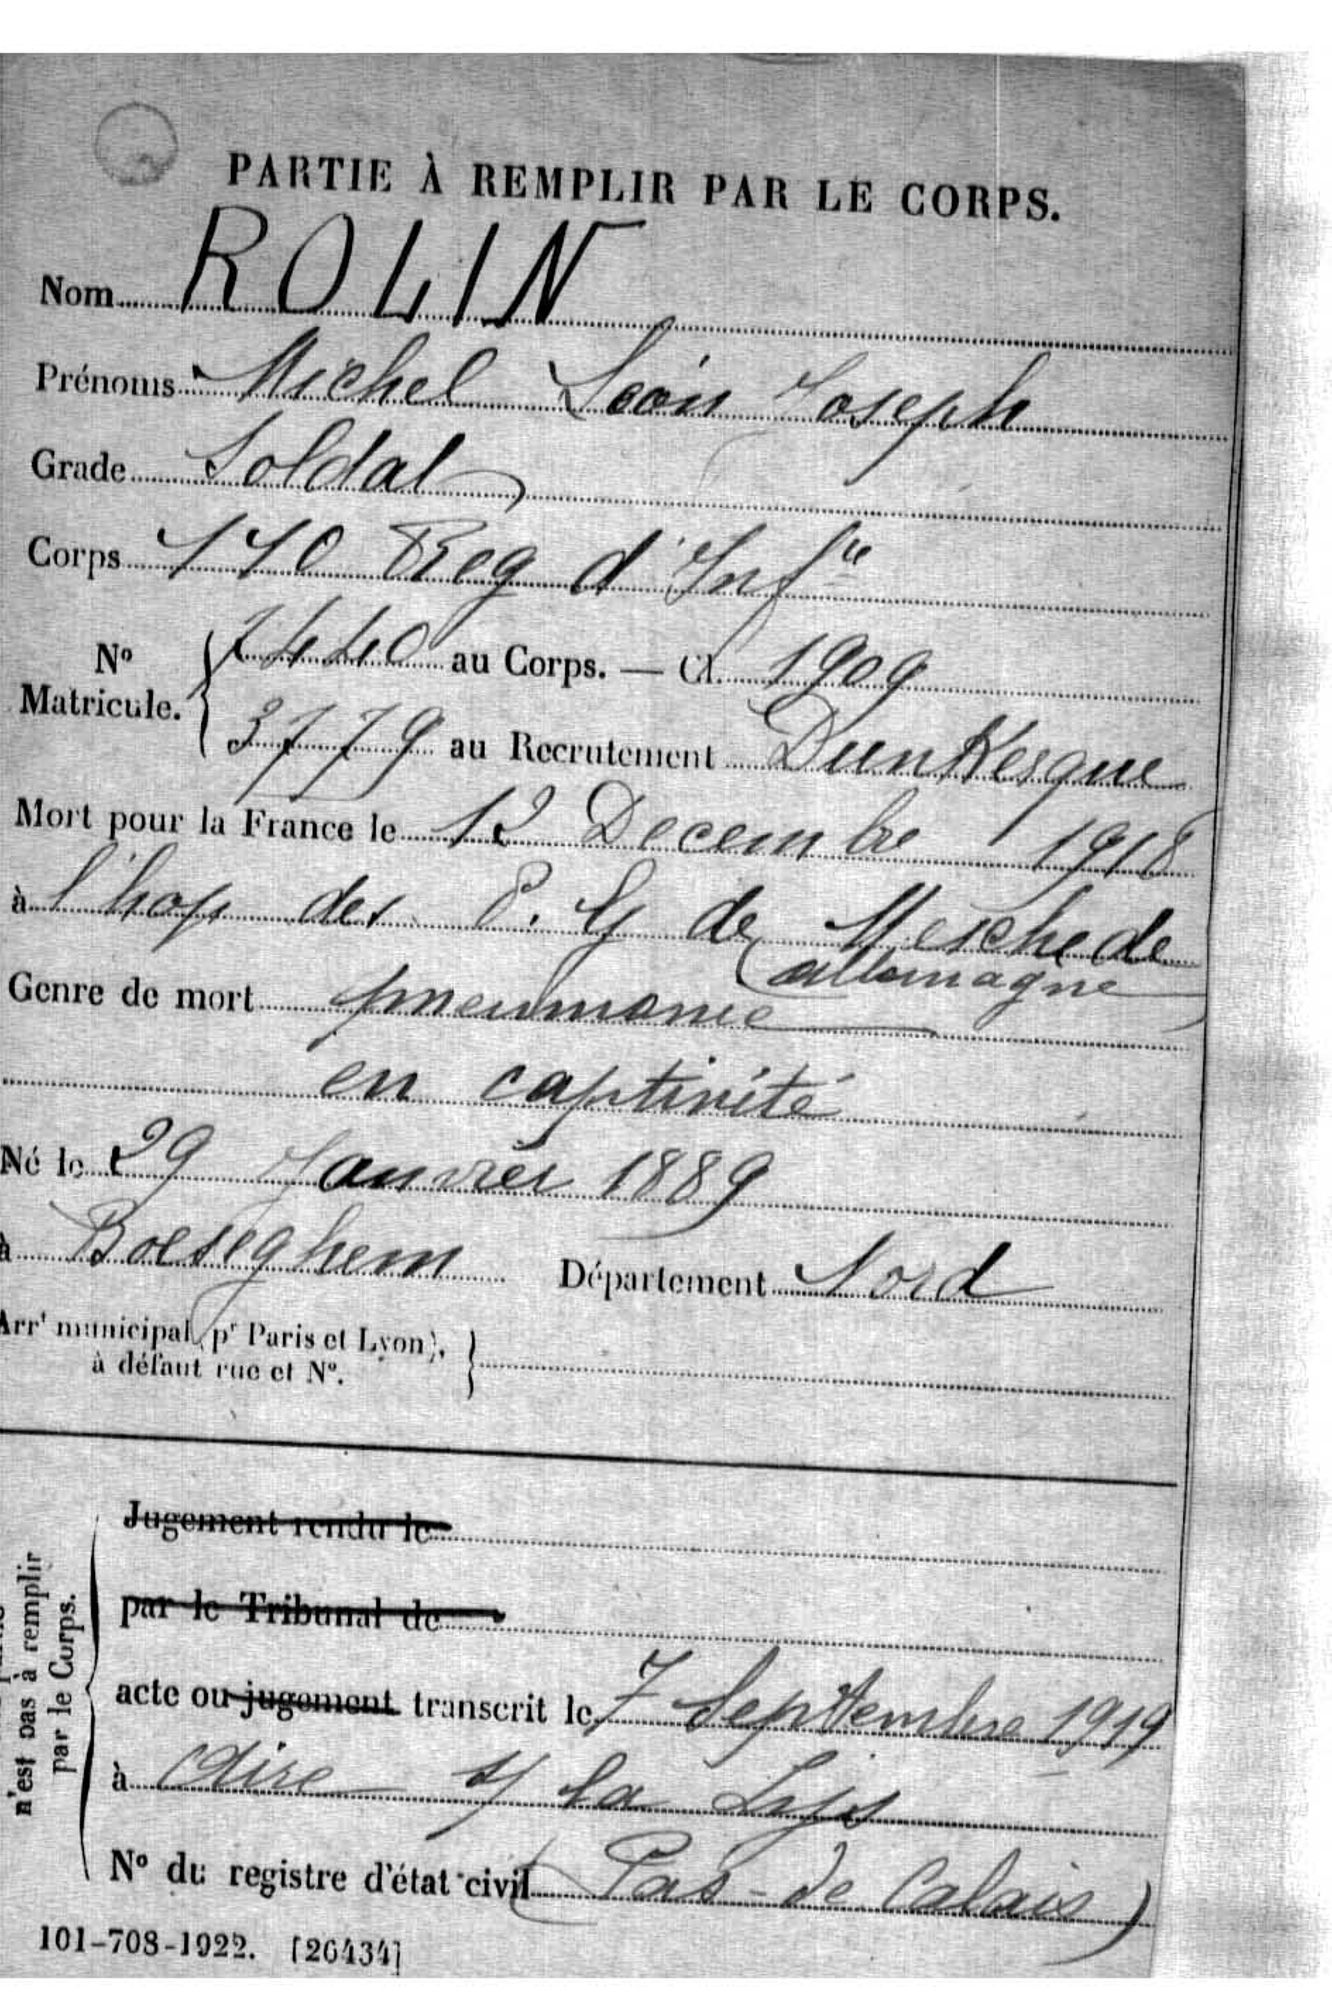 PARTIE À REMPLIR PAR LE CORPS.
Nom ROLIN
Prénoms Michel Léon Joseph
Grade Soldat
Corps 170 Reg d'Inf^ie
N° Matricule. { 7440 au Corps. — Cl. 1909
3779 au Recrutement Dunkerque
Mort pour la France le 12 Decembre 1918
à l'hop des P. G de Meschede
(allemagne)
Genre de mort pneumonie
en captivité
Né le 29 Janvier 1889
à Boeseghem Département Nord
Arr^t municipal (p^r Paris et Lyon),
à défaut rue et N°.
n'est pas à remplir
par le Corps.
Jugement rendu le
par le Tribunal de
acte ou jugement transcrit le 7 Septembre 1919
à Aire s/ la Lys
N° du registre d'état civil (Pas-de Calais)
101-708-1922. [26434]